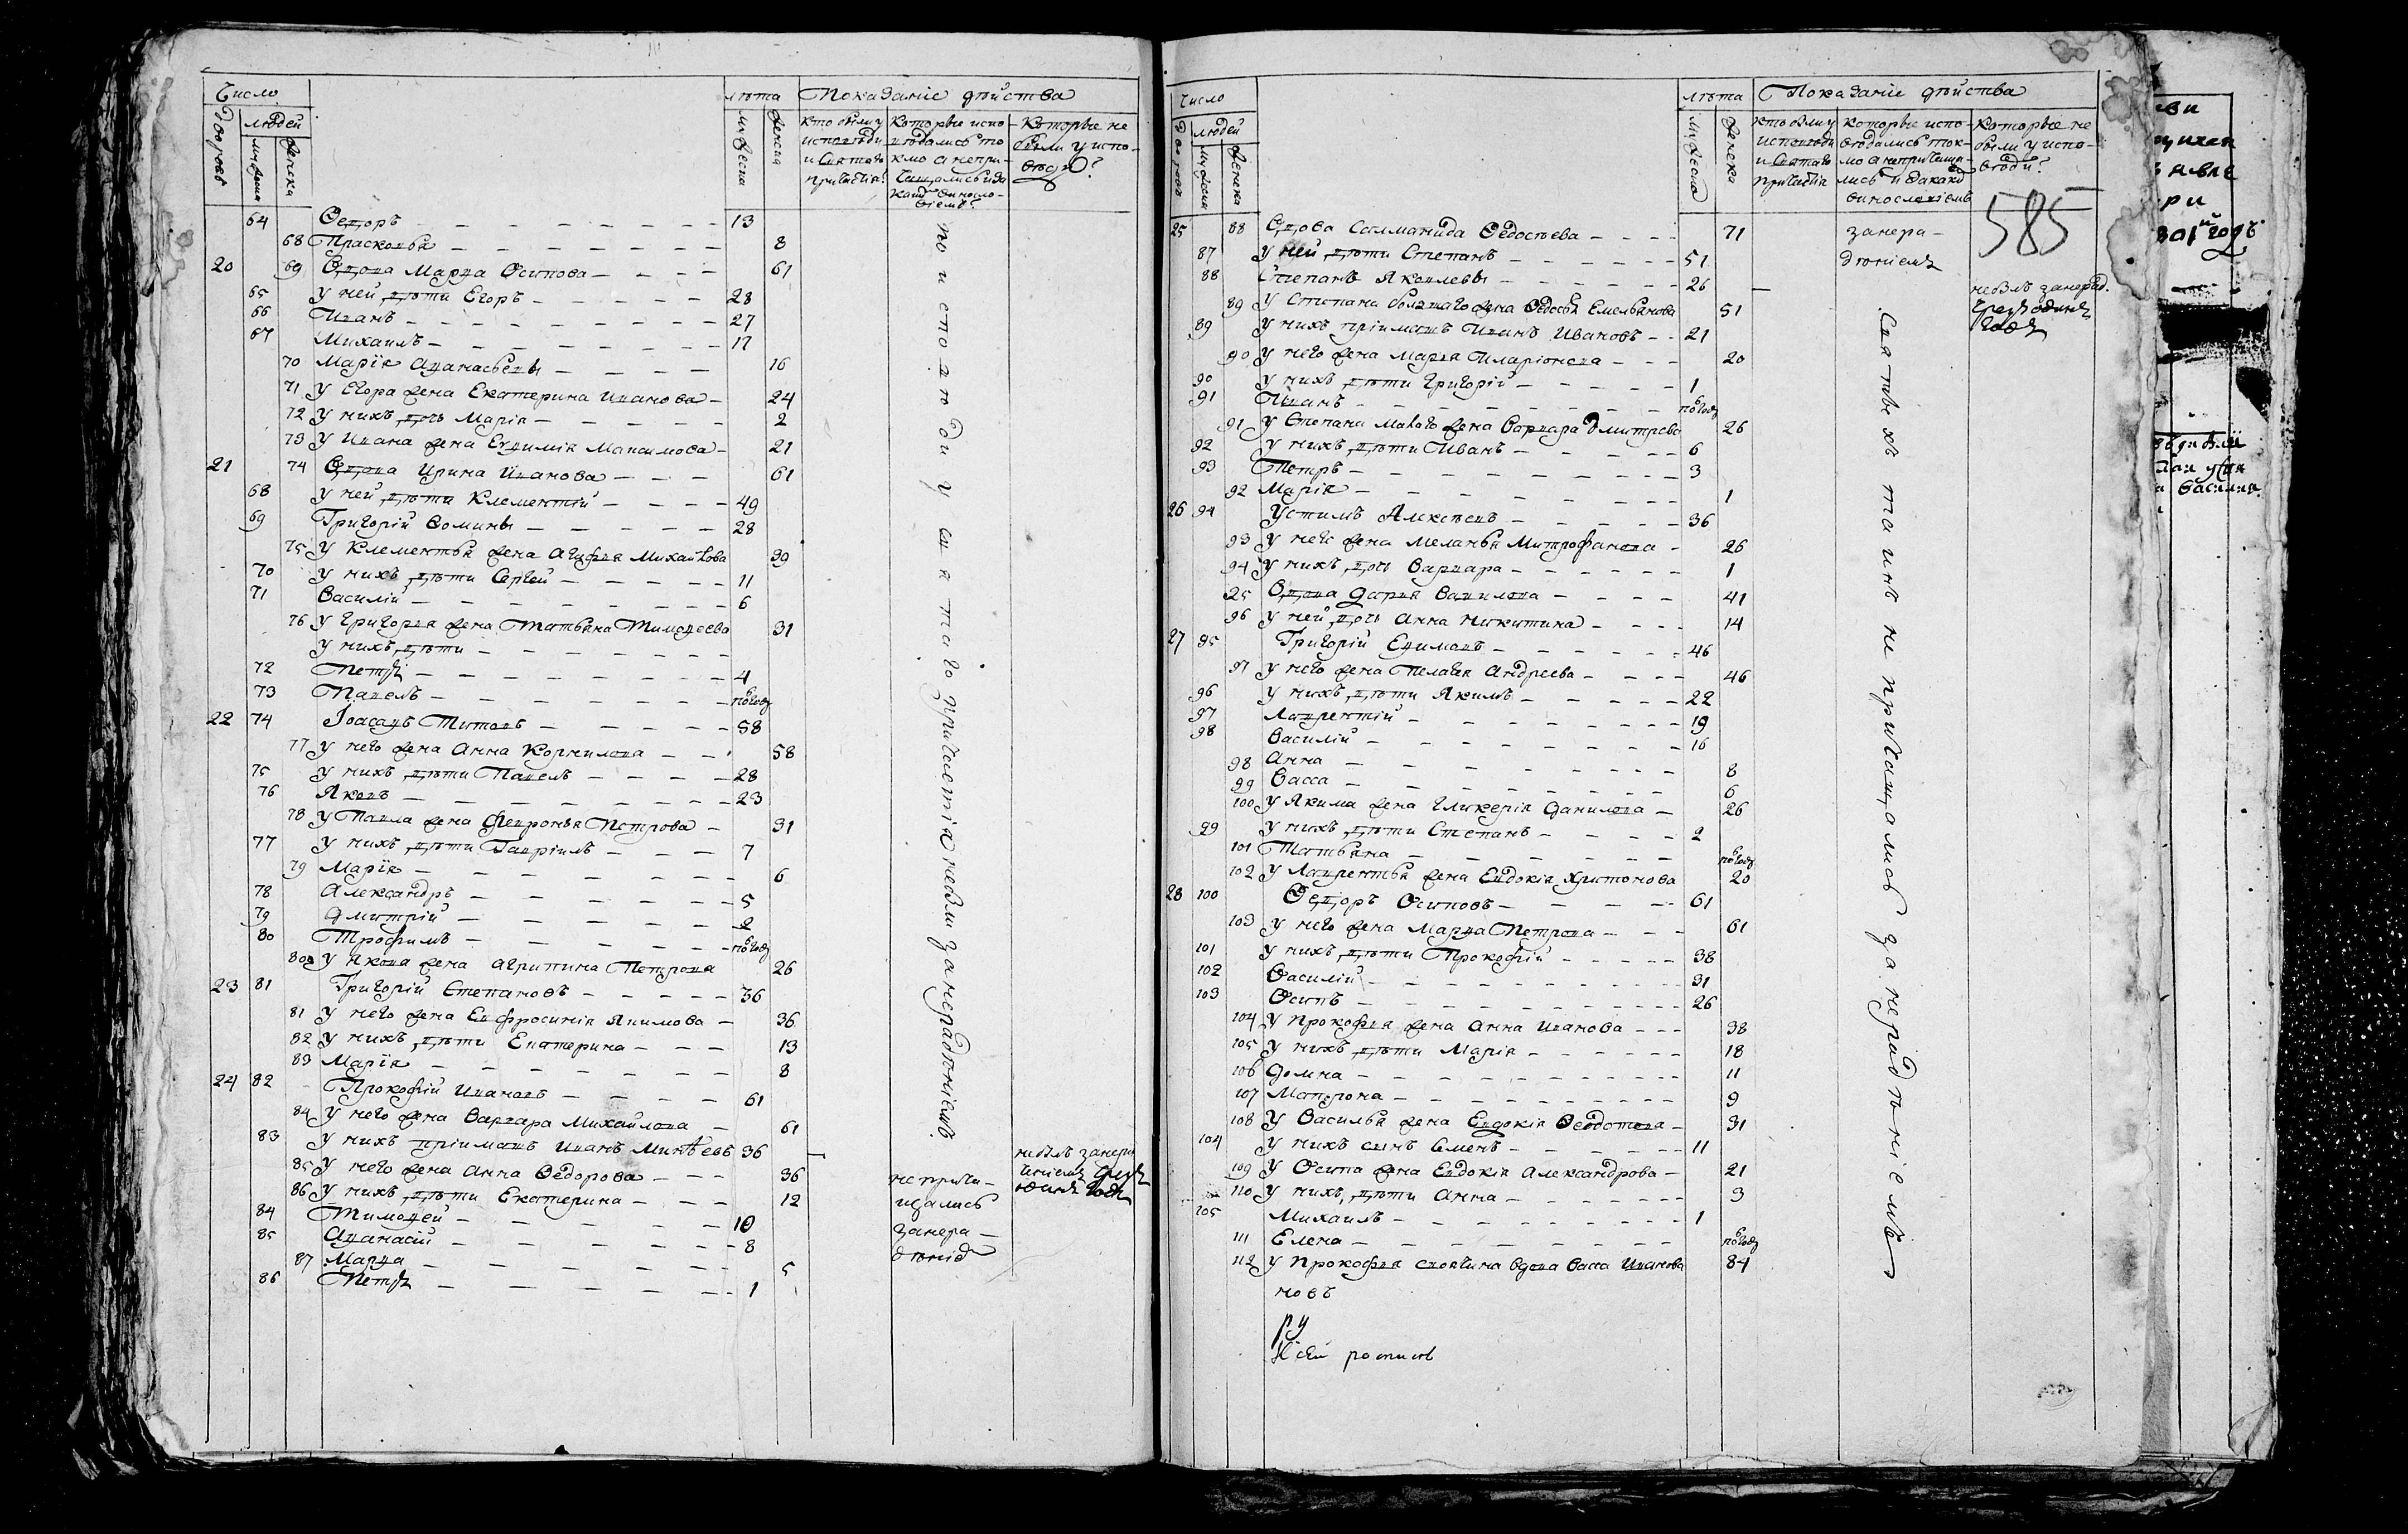 Число
лѣта
Показанiе дѣйства
дворовъ
людей
мужеска
женска
мужеска
женска
кто были у исповѣди и святаго причастiя?
которые исповѣдались токмо а непричащались и за какимъ винословiемъ?
которые не были у исповѣди?
64 Ѳедоръ 13
68 Прасковья 8
20 69 Вдова Марѳа Осипова 61
65 У ней дѣти Егоръ 28
66 Иванъ 27
67 Михаилъ 17
70 Марiя Аѳанасьевы 16
71 У Егора жена Екатерина Иванова 24
72 У нихъ дочь Марiя 2
73 У Ивана жена Евѳимiя Максимова 21
21 74 Вдова Ирина Иванова 61
68 У ней дѣти Клементiй 49
69 Григорiй Ѳомины 28
75 У Клементья жена Агафья Михайлова 39
70 У нихъ дѣти Сергей 11
71 Василiй 6
76 У Григорья жена Татьяна Тимоѳеева 31
У нихъ дѣти
72 Петръ 4
73 Павелъ полгода
22 74 Iоасафъ Титовъ 58
77 У него жена Анна Корнилова 58
75 У нихъ дѣти Павелъ 28
76 Яковъ 23
78 У Павла жена Февронья Петрова 31
77 У нихъ дѣти Гаврiилъ 7
79 Марiя 6
78 Александръ 5
79 Дмитрiй 2
80 Трофимъ полгода
80 У Якова жена Агрипина Петрова 26
23 81 Григорiй Степановъ 36
81 У него жена Евфросинiя Якимова 36
82 У нихъ дѣти Екатерина 13
83 Марiя 8
24 82 Прокофiй Ивановъ 61
84 У него жена Варвара Михайлова 61
83 У нихъ прiимашъ Иванъ Минѣевъ 36
85 У него жена Анна Ѳедорова 36
86 У нихъ дѣти Екатерина 12
84 Тимоѳей 10
85 Аѳанасiй 8
87 Марѳа 5
86 Петръ 1
по исповѣди у святаго причастiя небыли за нерадѣнiемъ
небылъ занера
одинъ годъ
непричащались занерадѣнiе
Число
лѣта
Показанiе дѣйства
дворовъ
людей
мужеска
женска
мужеска
женска
кто были у исповѣди и святаго причастiя
которые исповѣдались токмо а непричащались и за какимъ винословiемъ
которые не были у исповѣди?
585
25 88 Вдова Саламанида Ѳедосѣева 71
87 У ней дѣти Степанъ 51
88 Степанъ Яковлевы 26
89 У Степана большаго жена Ѳедосья Емельянова 51
89 У нихъ прiимашъ Иванъ Ивановъ 21
90 У него жена Марья Иларiонова 20
90 У нихъ дѣти Григорiй 1
91 Иванъ полгода
91 У Степана малаго жена Варвара Дмитрева 26
92 У нихъ дѣти Иванъ 6
93 Петръ 3
92 Марiя 1
26 94 Устимъ Алексѣевъ 36
93 У него жена Меланья Митрофанова 26
94 У нихъ дочь Варвара 1
95 Вдова Дарья Вавилова 41
96 У ней дочь Анна Никитина 14
27 95 Григорiй Ефимовъ 46
97 У него жена Пелагея Андреева 46
96 У нихъ дѣти Якимъ 22
97 Лаврентiй 19
98 Василiй 16
98 Анна 8
99 Васса 6
100 У Якима жена Гликерiя Данилова 26
99 У нихъ дѣти Степанъ 2
101 Татьяна полгода
102 У Лаврентья жена Евдокiя Христонова 20
28 100 Ѳедоръ Осиповъ 61
103 У него жена Марѳа Петрова 61
101 У нихъ дѣти Прокофiй 38
102 Василiй 31
103 Осипъ 26
104 У Прокофья жена Анна Иванова 38
105 У нихъ дѣти Марiя 18
106 Домна 11
107 Матрона 9
108 У Василья жена Евдокiя Ѳеодотова 31
104 У нихъ сынъ Семенъ 11
109 У Осипа жена Евдокiя Александрова 21
110 У нихъ дѣти Анна 3
105 Михаилъ 1
111 Елена полгода
112 У Прокофья своячина вдова Васса Иванова 84
новъ
ру
К сей росписи
занерадѣнiемъ
Святыхъ таинъ не причащались за нерадѣнiемъ
небылъ занерад.
одинъ
годъ